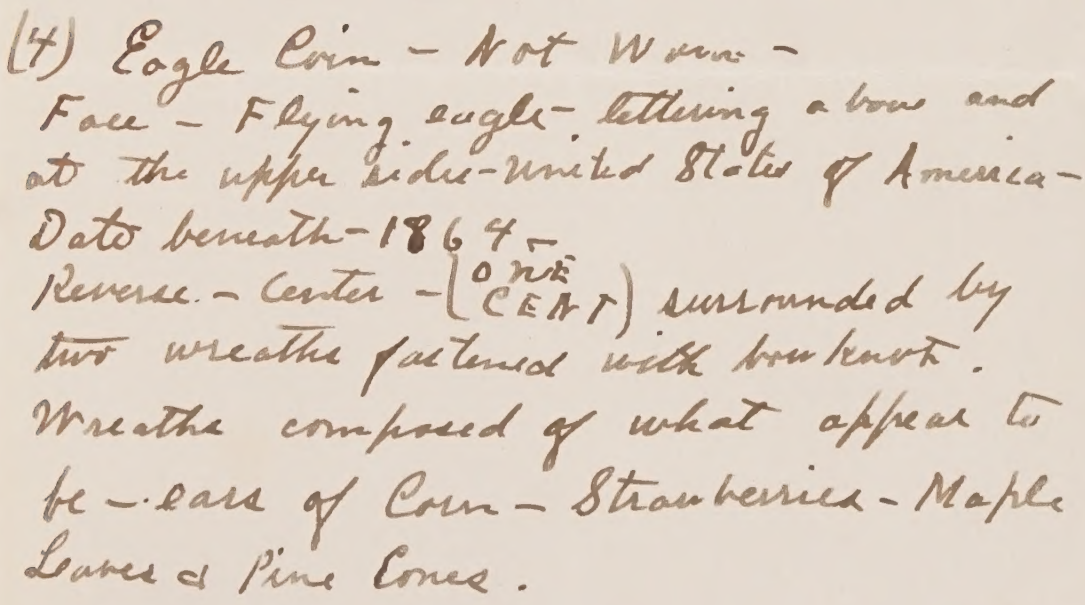 (4) Eagle Coin - Not Worn -
Face - Flying eagle - lettering above and
at the upper sides - United States of America -
Date beneath - 1864 -
Reverse. - Center - (ONE
CENT) surrounded by
two wreaths fastened with bow knot.
Wreaths composed of what appear to
be - ears of Corn - Strawberries - Maple
Leaves & Pine Cones.